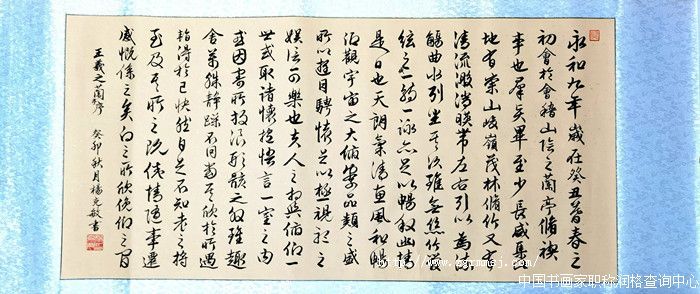 永和九年歲在癸丑暮春之
初會於會稽山陰之蘭亭脩禊
事也羣賢畢至少長咸集此
地有崇山峻嶺茂林脩竹又有
清流激湍暎帶左右引以為流
觴曲水列坐其次雖無絲竹管
弦之一觴一詠亦足以暢敘幽情
是日也天朗氣清惠風和暢
仰觀宇宙之大俯察品類之盛
所以遊目騁懷足以極視聽之
娛信可樂也夫人之相與俯仰一
世或取諸懷抱悟言一室之內
或因寄所託放浪形骸之外雖趣
舍萬殊靜躁不同當其欣於所遇
暫得於己快然自足不知老之將
至及其所之既惓情隨事遷
感慨係之矣向之所欣俛仰之間
王羲之蘭亭序 癸卯秋月楊克敏書
中国书画家职称润格查询中心